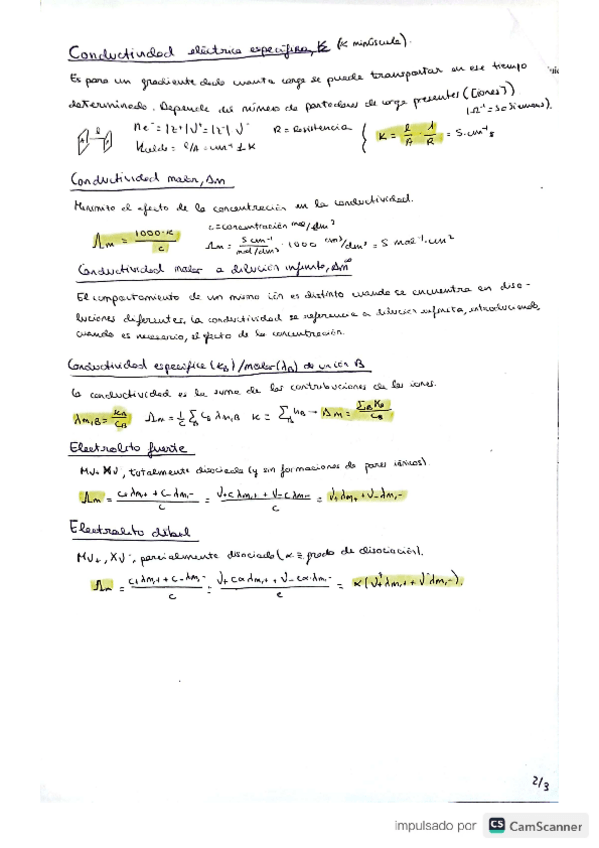 Conductividad eléctrica específica, K (K minúscula).
Es para un gradiente dado cuanta carga se puede transportar en ese tiempo
determinado. Depende del número de portadores de carga presentes ([iones])
(Ω⁻¹ = Siemens).
l
A
ne⁻ = |z⁺|ν⁺ = |z⁻|ν⁻ R = Resistencia K = l/A · 1/R = S·cm⁻¹
Kcelda = l/A = cm⁻¹
Conductividad molar, Λm
el efecto de la concentración en la conductividad.
Λm = 1000·K/c c = concentración mol/dm³ Λm = S cm⁻¹/mol/dm³ · 1000 cm³/dm³ = S mol⁻¹·cm²
Conductividad molar a dilución infinita, Λm∞
El comportamiento de un mismo ión es distinto cuando se encuentra en diso-
luciones diferentes. La conductividad se referencia a dilución infinita, introduciendo,
cuando es necesario, el efecto de la concentración.
Conductividad específica (KB) / molar (λB) de un ión B
La conductividad es la suma de las contribuciones de los iones.
λm,B = KB/CB Λm = 1/c ∑B CB λm,B K = ∑B KB → Λm = ∑B KB/CB
Electrolito fuerte
Mν₊ Xν₋, totalmente disociado (y sin formaciones de pares iónicos).
Λm = c₊λm,₊ + c₋λm,₋/c = ν₊cλm,₊ + ν₋cλm,₋/c = ν₊λm,₊ + ν₋λm,₋
Electrolito débil
Mν₊, Xν₋, parcialmente disociado (α ≡ grado de disociación).
Λm = c₊λm,₊ + c₋λm,₋/c = ν₊cαλm,₊ + ν₋cαλm,₋/c = α(ν₊λm,₊ + ν₋λm,₋).
2/3
impulsado por CS CamScanner